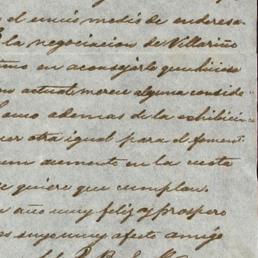 o el unico medio de endereza
la negociacion de Villariño
timo en aconsejarle que hiciese
actual merece alguna conside
como ademas de la exhibicion
uer otra igual para el foment
un aumento en la cuota
e quiere que cumplan.
año muy feliz y prospero
os suyo muy afecto amigo